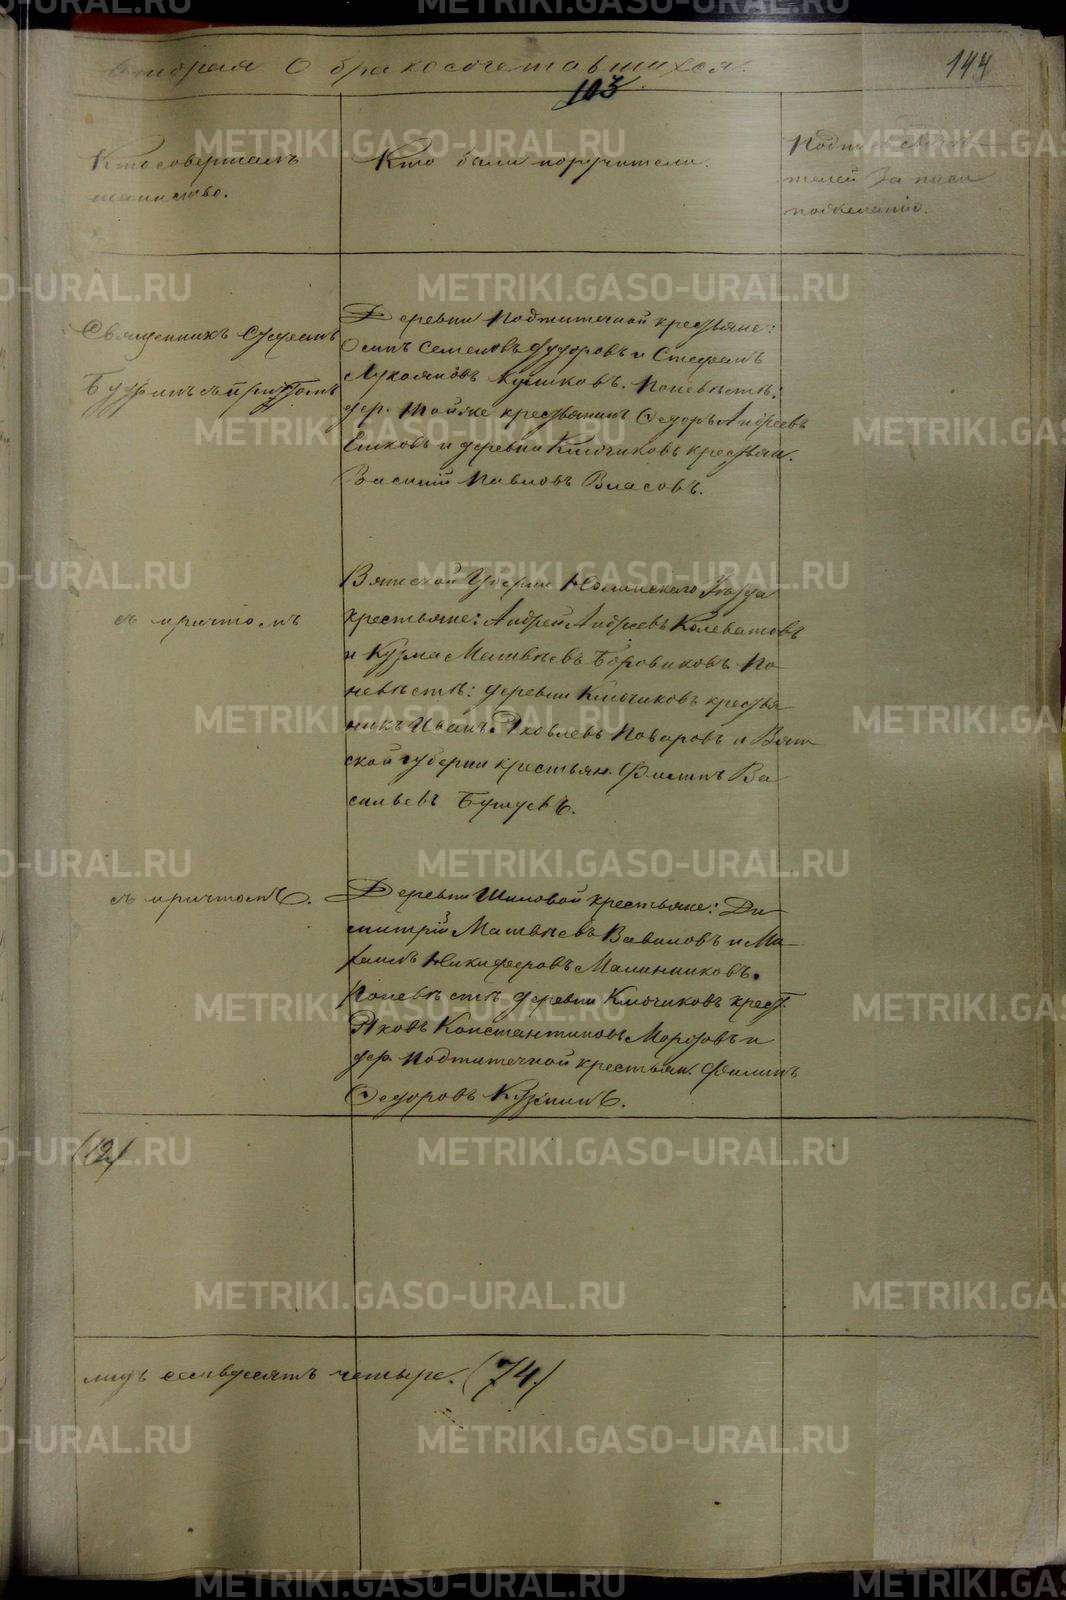 вторая О бракосочетавшихся.
144
103
Кто совершалъ
таинство.
Кто были поручители.
телей за
Священникъ Стефанъ
съ причтомъ
Деревни Подтитечной крестьяне:
Осипъ Семеновъ и Стефанъ
Лукояновъ Кушковъ. По невѣстѣ:
дер. крестьянинъ Федоръ Андреевъ
и деревни Ключиковъ крестьян.
Василій Павловъ Власовъ.
съ причтомъ
Вятской Губерніи Нолинскаго Уѣзда
крестьяне: Андрей Андреевъ Колеватовъ
и Кузма Матвѣевъ Боровиковъ По
невѣстѣ: деревни Ключиковъ крестья
нинъ Иванъ Яковлевъ Поваровъ и Вят
ской губерніи крестьян. Филипъ Ва
сильевъ
съ причтомъ.
Деревни Шиловой крестьяне: Ди
митрій Матвѣевъ Вавиловъ и Ма
Никифоровъ Малинниковъ.
По невѣстѣ деревни Ключиковъ крест.
Яковъ Константиновъ Морозовъ и
дер. Подтитечной крестьян. Филипъ
Федоровъ Кузминъ.
(12)
лицъ семьдесятъ четыре. (74.)
METRIKI.GASO-URAL.RU